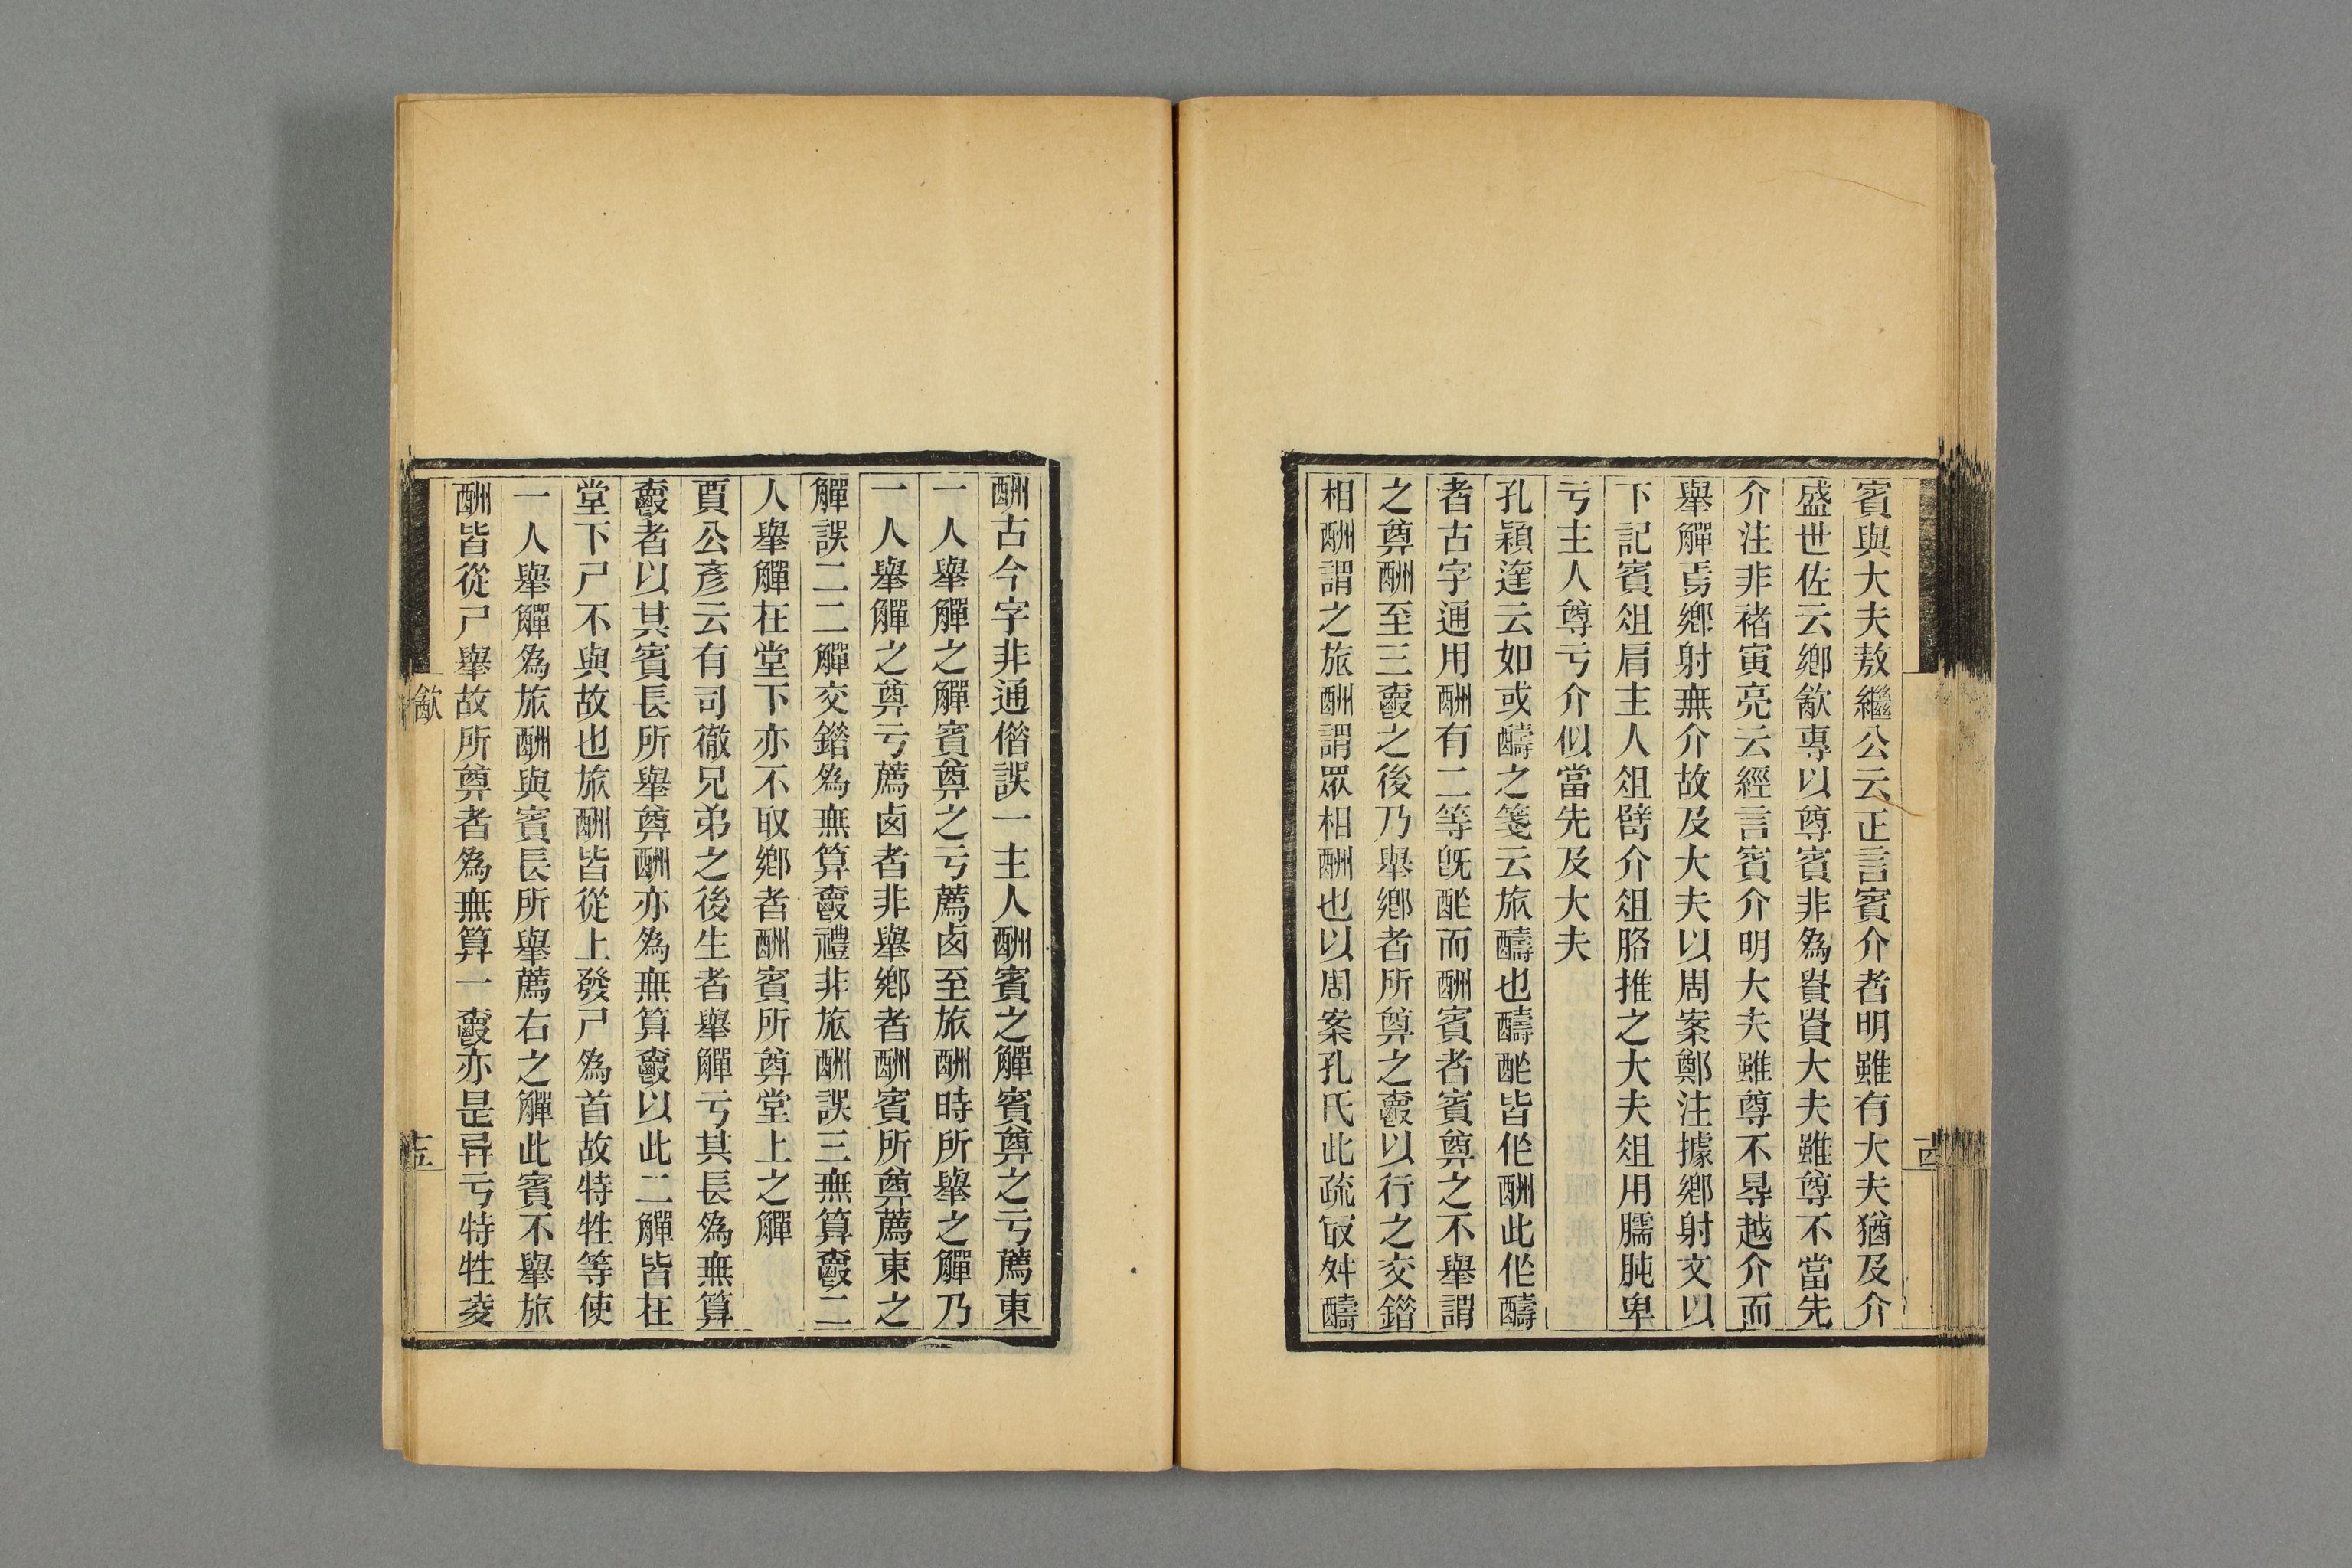 賓與大夫敖繼公云正言賓介者明雖有大夫猶及介
盛世佐云鄉飮專以尊賓非爲貴貴大夫雖尊不當先
介注非褚寅亮云經言賓介明大夫雖尊不㝵越介而
舉觶焉鄉射無介故及大夫以周案鄭注據鄉射文以
下記賓俎肩主人俎臂介俎胳推之大夫俎用臑肫卑
亏主人尊亏介似當先及大夫
孔穎達云如或醻之箋云旅醻也醻酢皆作酬此作醻
者古字通用酬有二等旣酢而酬賓者賓奠之不舉謂
之奠酬至三爵之後乃舉鄉者所奠之爵以行之交錯
相酬謂之旅酬謂眾相酬也以周案孔氏此疏㝡舛醻
酬古今字非通借誤一主人酬賓之觶賓奠之亏薦東
一人舉觶之觶賓奠之亏薦卤至旅酬時所舉之觶乃
一人舉觶之奠亏薦卤者非舉鄉者酬賓所奠薦東之
觶誤二二觶交錯爲無算爵禮非旅酬誤三無算爵二
人舉觶在堂下亦不取鄉者酬賓所奠堂上之觶
賈公彥云有司徹兄弟之後生者舉觶亏其長爲無算
爵者以其賓長所舉奠酬亦爲無算爵以此二觶皆在
堂下尸不與故也旅酬皆從上發尸爲首故特牲等使
一人舉觶爲旅酬與賓長所舉薦右之觶此賓不舉旅
酬皆從尸舉故所奠者爲無算一爵亦是异亏特牲夌
飮
十五
十四